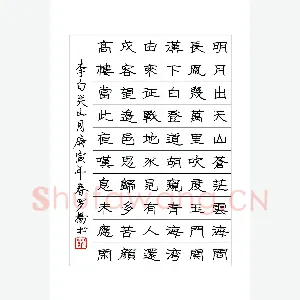 明月出天山蒼茫雲海間
長風幾萬里吹度玉門關
漢下白登道胡窺青海灣
由來征戰地不見有人還
戍客望邊邑思歸多苦顏
高樓當此夜嘆息未應閑
李白关山月庚寅年春
Shufawang.CN